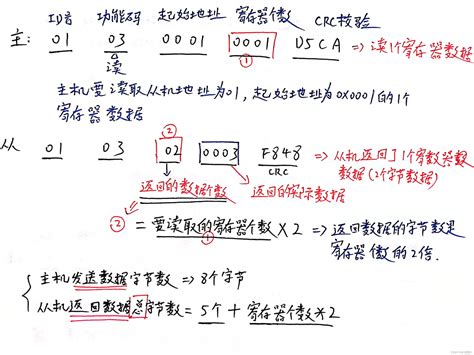 ID号 功能码 起始地址 寄存器个数 CRC校验
主: 01 03 0001 0001 D5CA => 读1个寄存器数据
读 ①
主机要读取从机地址为01, 起始地址为0X0001的1个
寄存器数据
②
从 01 03 02 0003 F848 => 从机返回了1个寄存器
CRC 数据(2个字节数据)
返回的数据个数 返回的实际数据
② = 要读取的寄存器个数 × 2 => 返回数据的字节数是
① 寄存器个数的2倍.
主机发送数据字节数 => 8个字节
从机返回数据总字节数 = 5个 + 寄存器个数*2